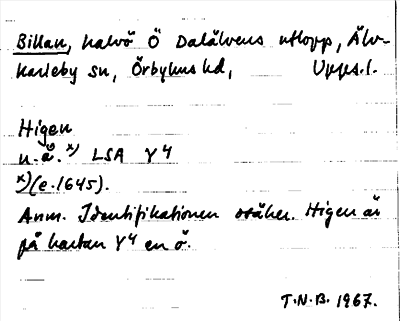 Billan, halvö Ö Dalälvens utlopp, Älv-
karleby sn, Örbyhus hd, Upps.l.
Higen
n.å. x) LSA Y4
x)(e.1645).
Anm. Identifikationen osäker. Higen är
på kartan Y4 en ö.
T.N.B. 1967.